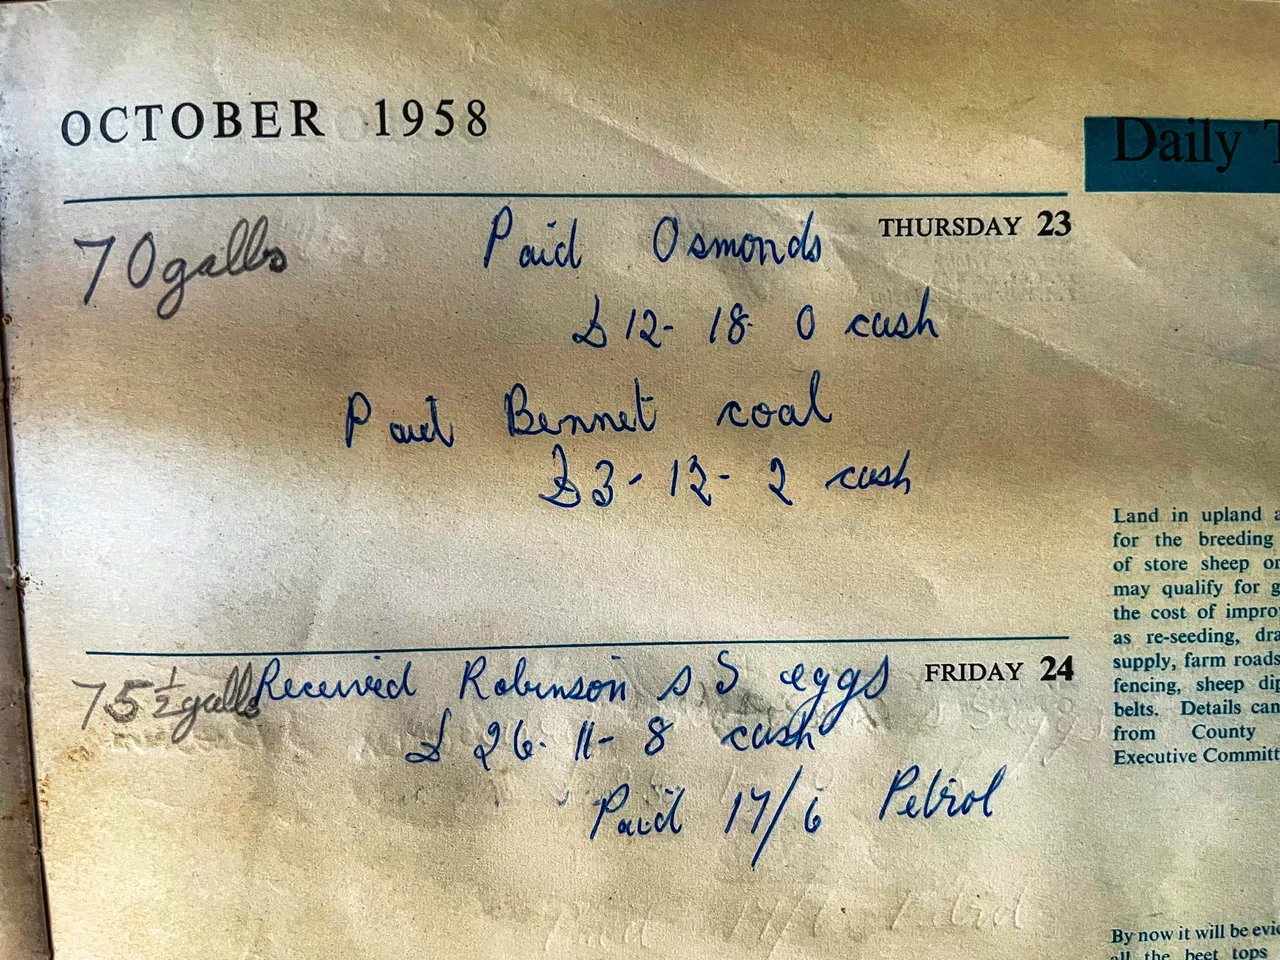 OCTOBER 1958
Daily
THURSDAY 23
70galls
Paid Osmonds
£12-18-0 cash
Paid Bennet coal
£3-12-2 cash
FRIDAY 24
75½galls
Received Robinson s S eggs
£26-11-8 cash
Paid 17/6 Petrol
Land in upland
for the breeding
of store sheep
may qualify for
the cost of
as re-seeding,
supply, farm roads
fencing, sheep
belts. Details can
from County
Executive
By now it will be
all the beet tops